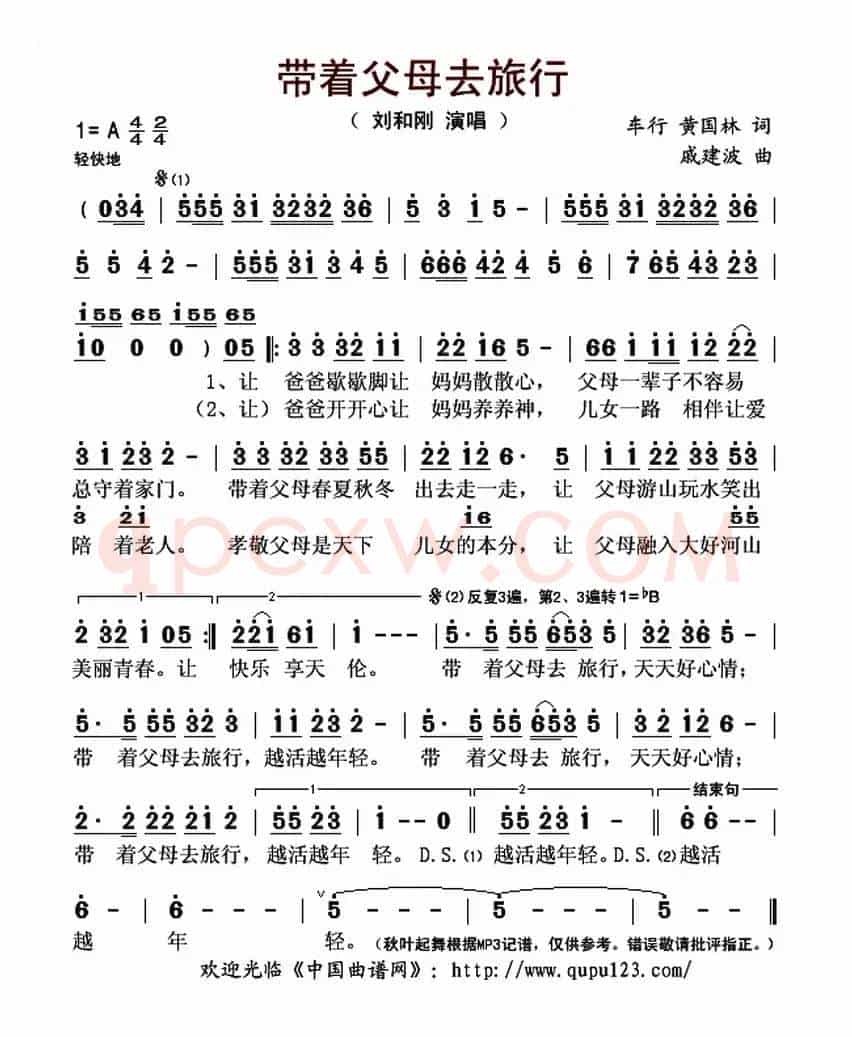 带着父母去旅行
( 刘和刚 演唱 )
1= A 4/4 2/4
车行 黄国林 词
轻快地
戚建波 曲
𝄋(1)
( 034 | 555 31 3232 36 | 5 3 1 5 - | 555 31 3232 36 |
5 5 4 2 - | 555 31 3 4 5 | 666 42 4 5 6 | 7 65 43 23 |
155 65 155 65
10 0 0 ) 05 ‖: 3 3 32 11 | 22 16 5 - | 66 11 12 22 |
1、让 爸爸歇歇脚让 妈妈散散心, 父母一辈子不容易
(2、让) 爸爸开开心让 妈妈养养神, 儿女一路 相伴让爱
3 1 23 2 - | 3 3 32 55 | 22 12 6· 5 | 11 23 33 53 |
总守着家门。 带着父母春夏秋冬 出去走一走, 让 父母游山玩水笑出
3 21 16 55
陪 着老人。 孝敬父母是天下 儿女的本分, 让 父母融入大好河山
qpcxw.COM
1 2 𝄋(2)反复3遍, 第2、3遍转1=♭B
2 32 1 05 :‖ 221 61 | 1 - - - | 5· 5 55 653 5 | 32 36 5 - |
美丽青春。让 快乐 享天 伦。 带 着父母去 旅行, 天天好心情;
5· 5 55 32 3 | 11 23 2 - | 5· 5 55 653 5 | 3 2 12 6 - |
带 着父母去旅行, 越活越年轻。 带 着父母去 旅行, 天天好心情;
1 2 结束句
2· 2 22 21 2 | 55 23 | 1 - - 0 ‖ 55 23 1 - ‖ 6 6 - - |
带 着父母去旅行, 越活越年 轻。D.S.(1) 越活越年轻。D.S.(2)越活
6 - - | 6 - - - | 5 - - - | 5 - - - | 5 - ‖
越 年 轻。(秋叶起舞根据MP3记谱, 仅供参考。错误敬请批评指正。)
欢迎光临《中国曲谱网》: http://www.qupu123.com/